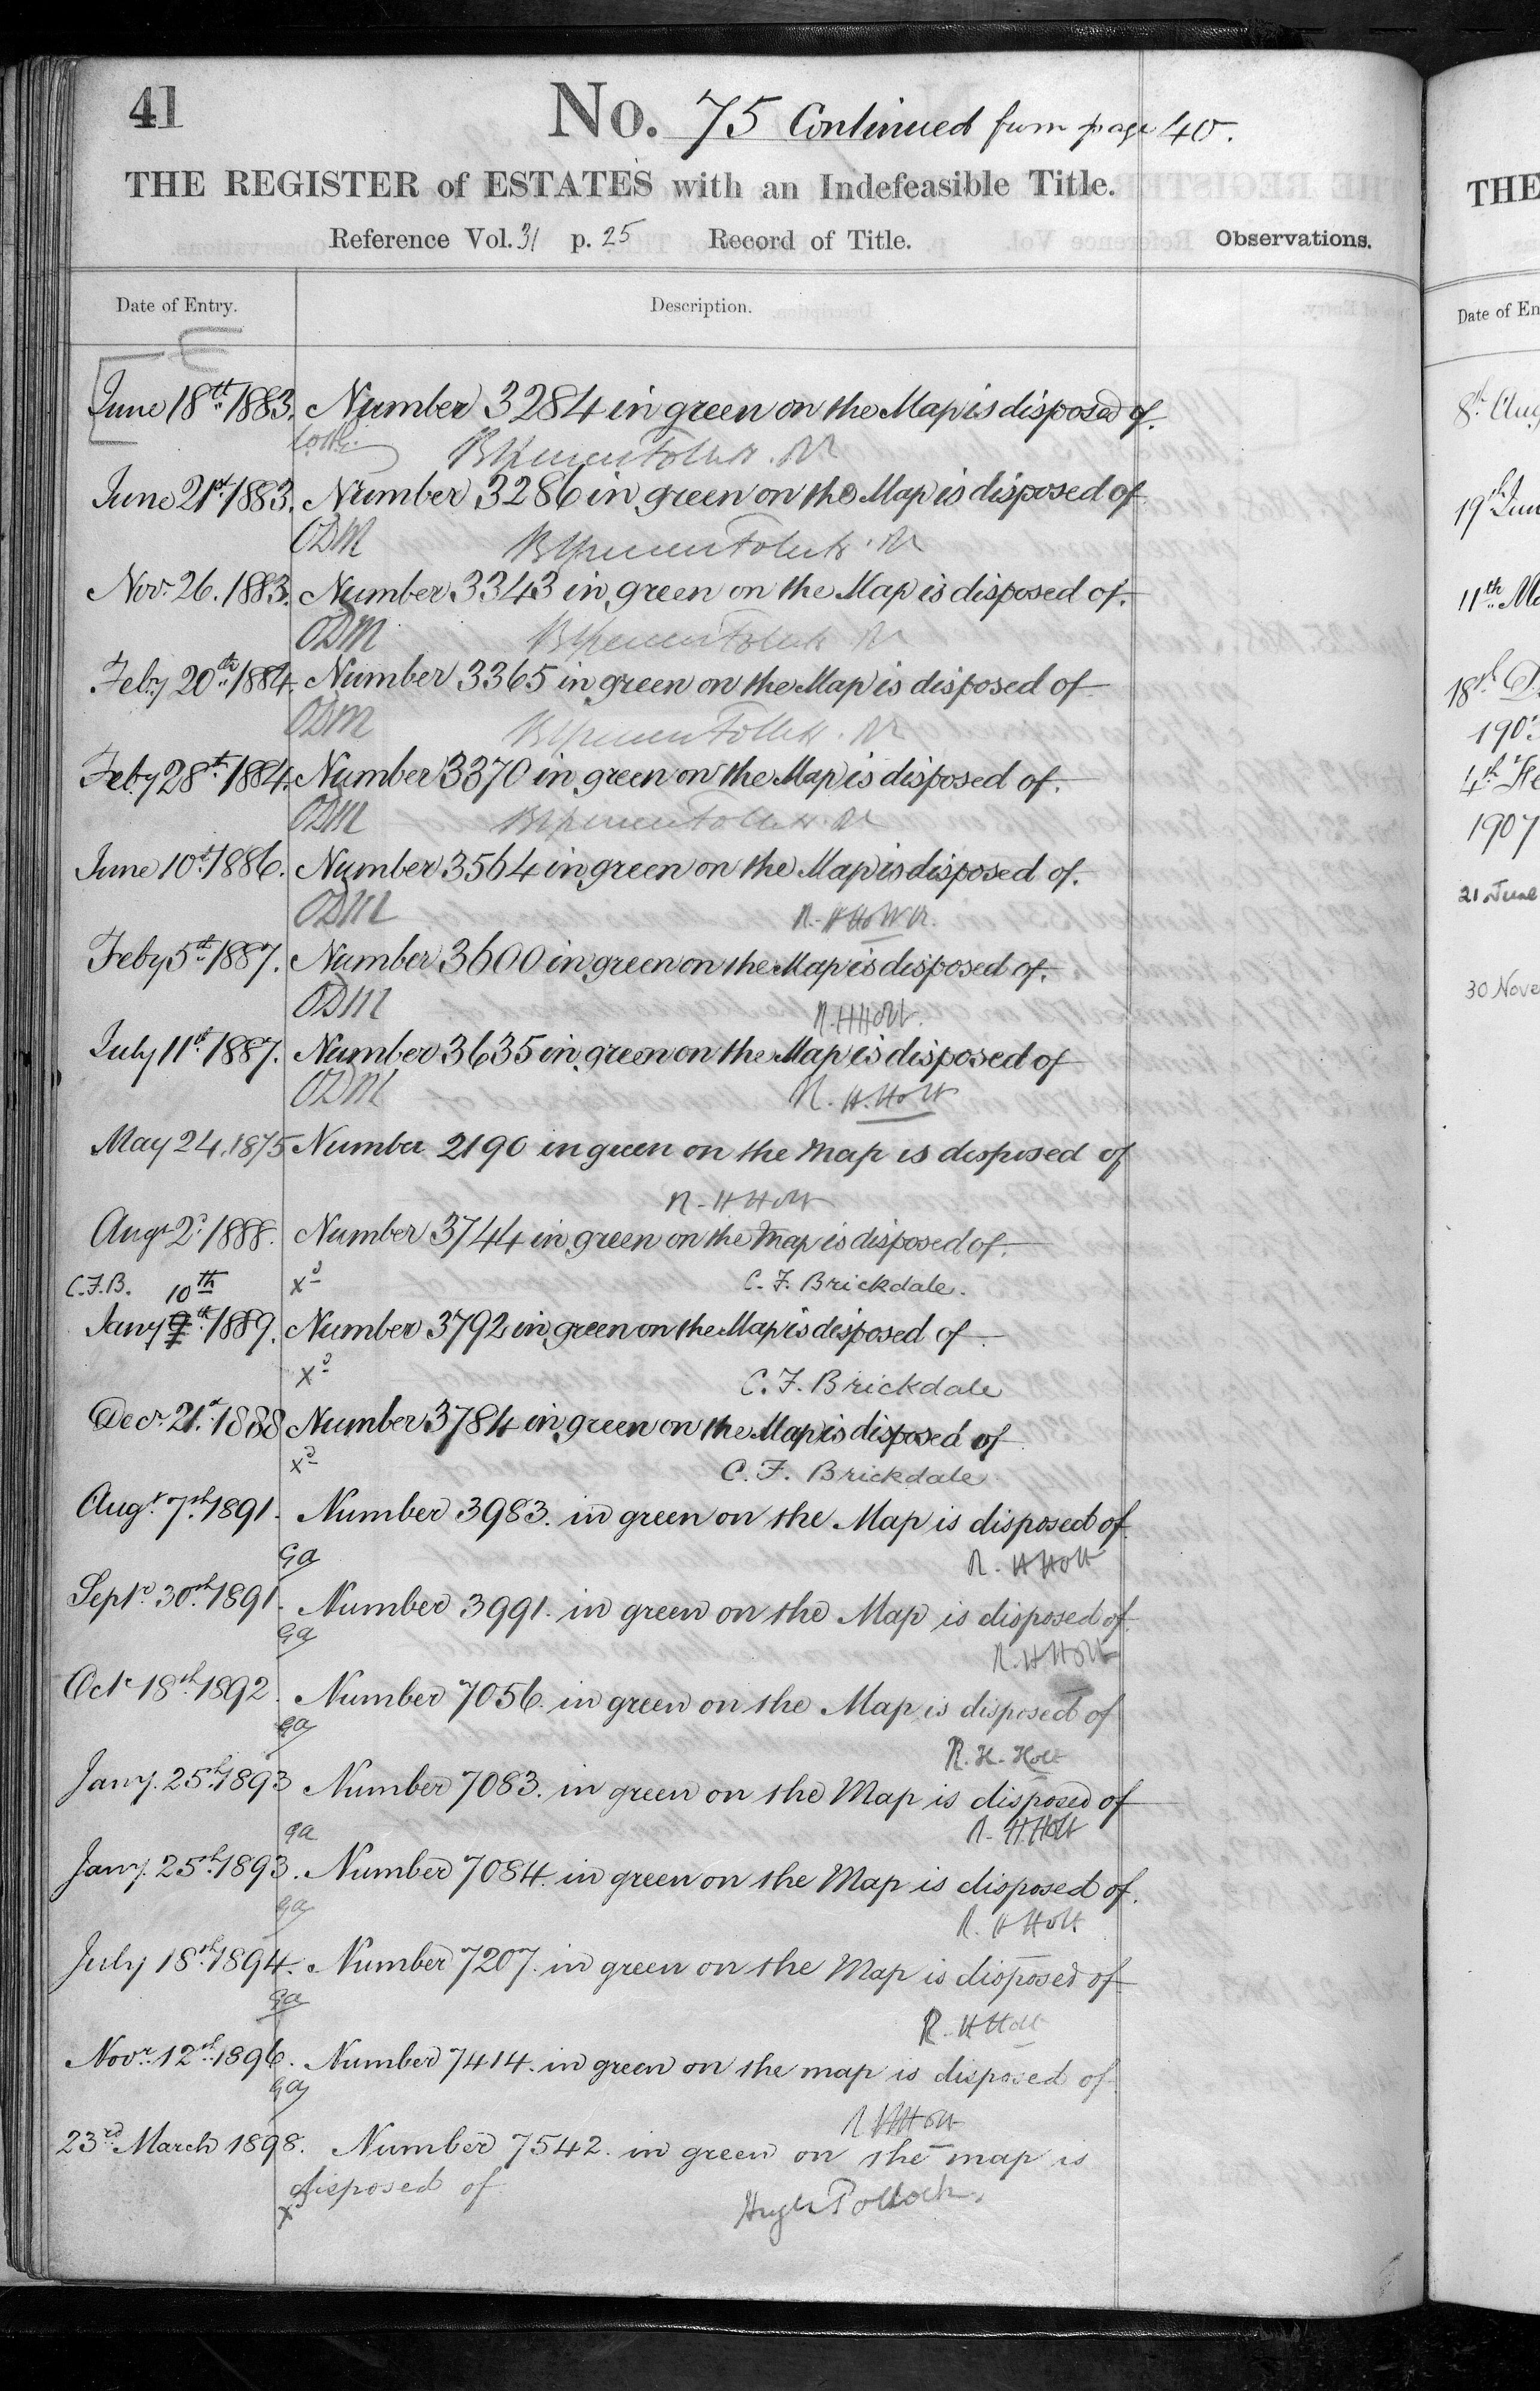 41
No. 75 Continued from page 40.
THE REGISTER of ESTATES with an Indefeasible Title.
Reference Vol. 31 p. 25 Record of Title.
Observations.
Date of Entry. Description.
June 18th 1883. Number 3284 in green on the Map is disposed of.
June 21st 1883. Number 3286 in green on the Map is disposed of
ODM
Novr 26. 1883. Number 3343 in green on the Map is disposed of.
ODM
Feby 20th 1884. Number 3365 in green on the Map is disposed of
ODM
Feby 28th 1884. Number 3370 in green on the Map is disposed of.
ODM
June 10th 1886. Number 3564 in green on the Map is disposed of.
ODM R. H Holt
Feby 5th 1887. Number 3600 in green on the Map is disposed of.
ODM R. H Holt.
July 11th 1887. Number 3635 in green on the Map is disposed of
ODM R. H. Holt
May 24. 1875 Number 2190 in green on the Map is disposed of
R. H Holt
Augt 2d 1888. Number 3744 in green on the Map is disposed of.
C. F. Brickdale.
C.F.B. 10th
Jany 9th 1889. Number 3792 in green on the Map is disposed of
C. F. Brickdale
Decr 21st 1888 Number 3784 in green on the Map is disposed of
C. F. Brickdale
Augt 7th 1891. Number 3983. in green on the Map is disposed of
Ga R. H Holt
Septr 30th 1891. Number 3991. in green on the Map is disposed of.
Ga R. H Holt
Octr 18th 1892. Number 7056. in green on the Map is disposed of
Ga R. H. Holt
Jany. 25th 1893 Number 7083. in green on the Map is disposed of
Ga R. H Holt
Jany. 25th 1893. Number 7084. in green on the Map is disposed of.
Ga R. H Holt
July 18th 1894. Number 7207. in green on the Map is disposed of
Ga R. H Holt
Novr 12th 1896. Number 7414. in green on the map is disposed of
Ga R H Holt
23rd March 1898. Number 7542. in green on the map is
disposed of
Hugh Pollock.
THE
Date of En
8th Aug
19th Jun
11th Ma
18th D
1903
4th Fe
1907
21 June
30 Nove